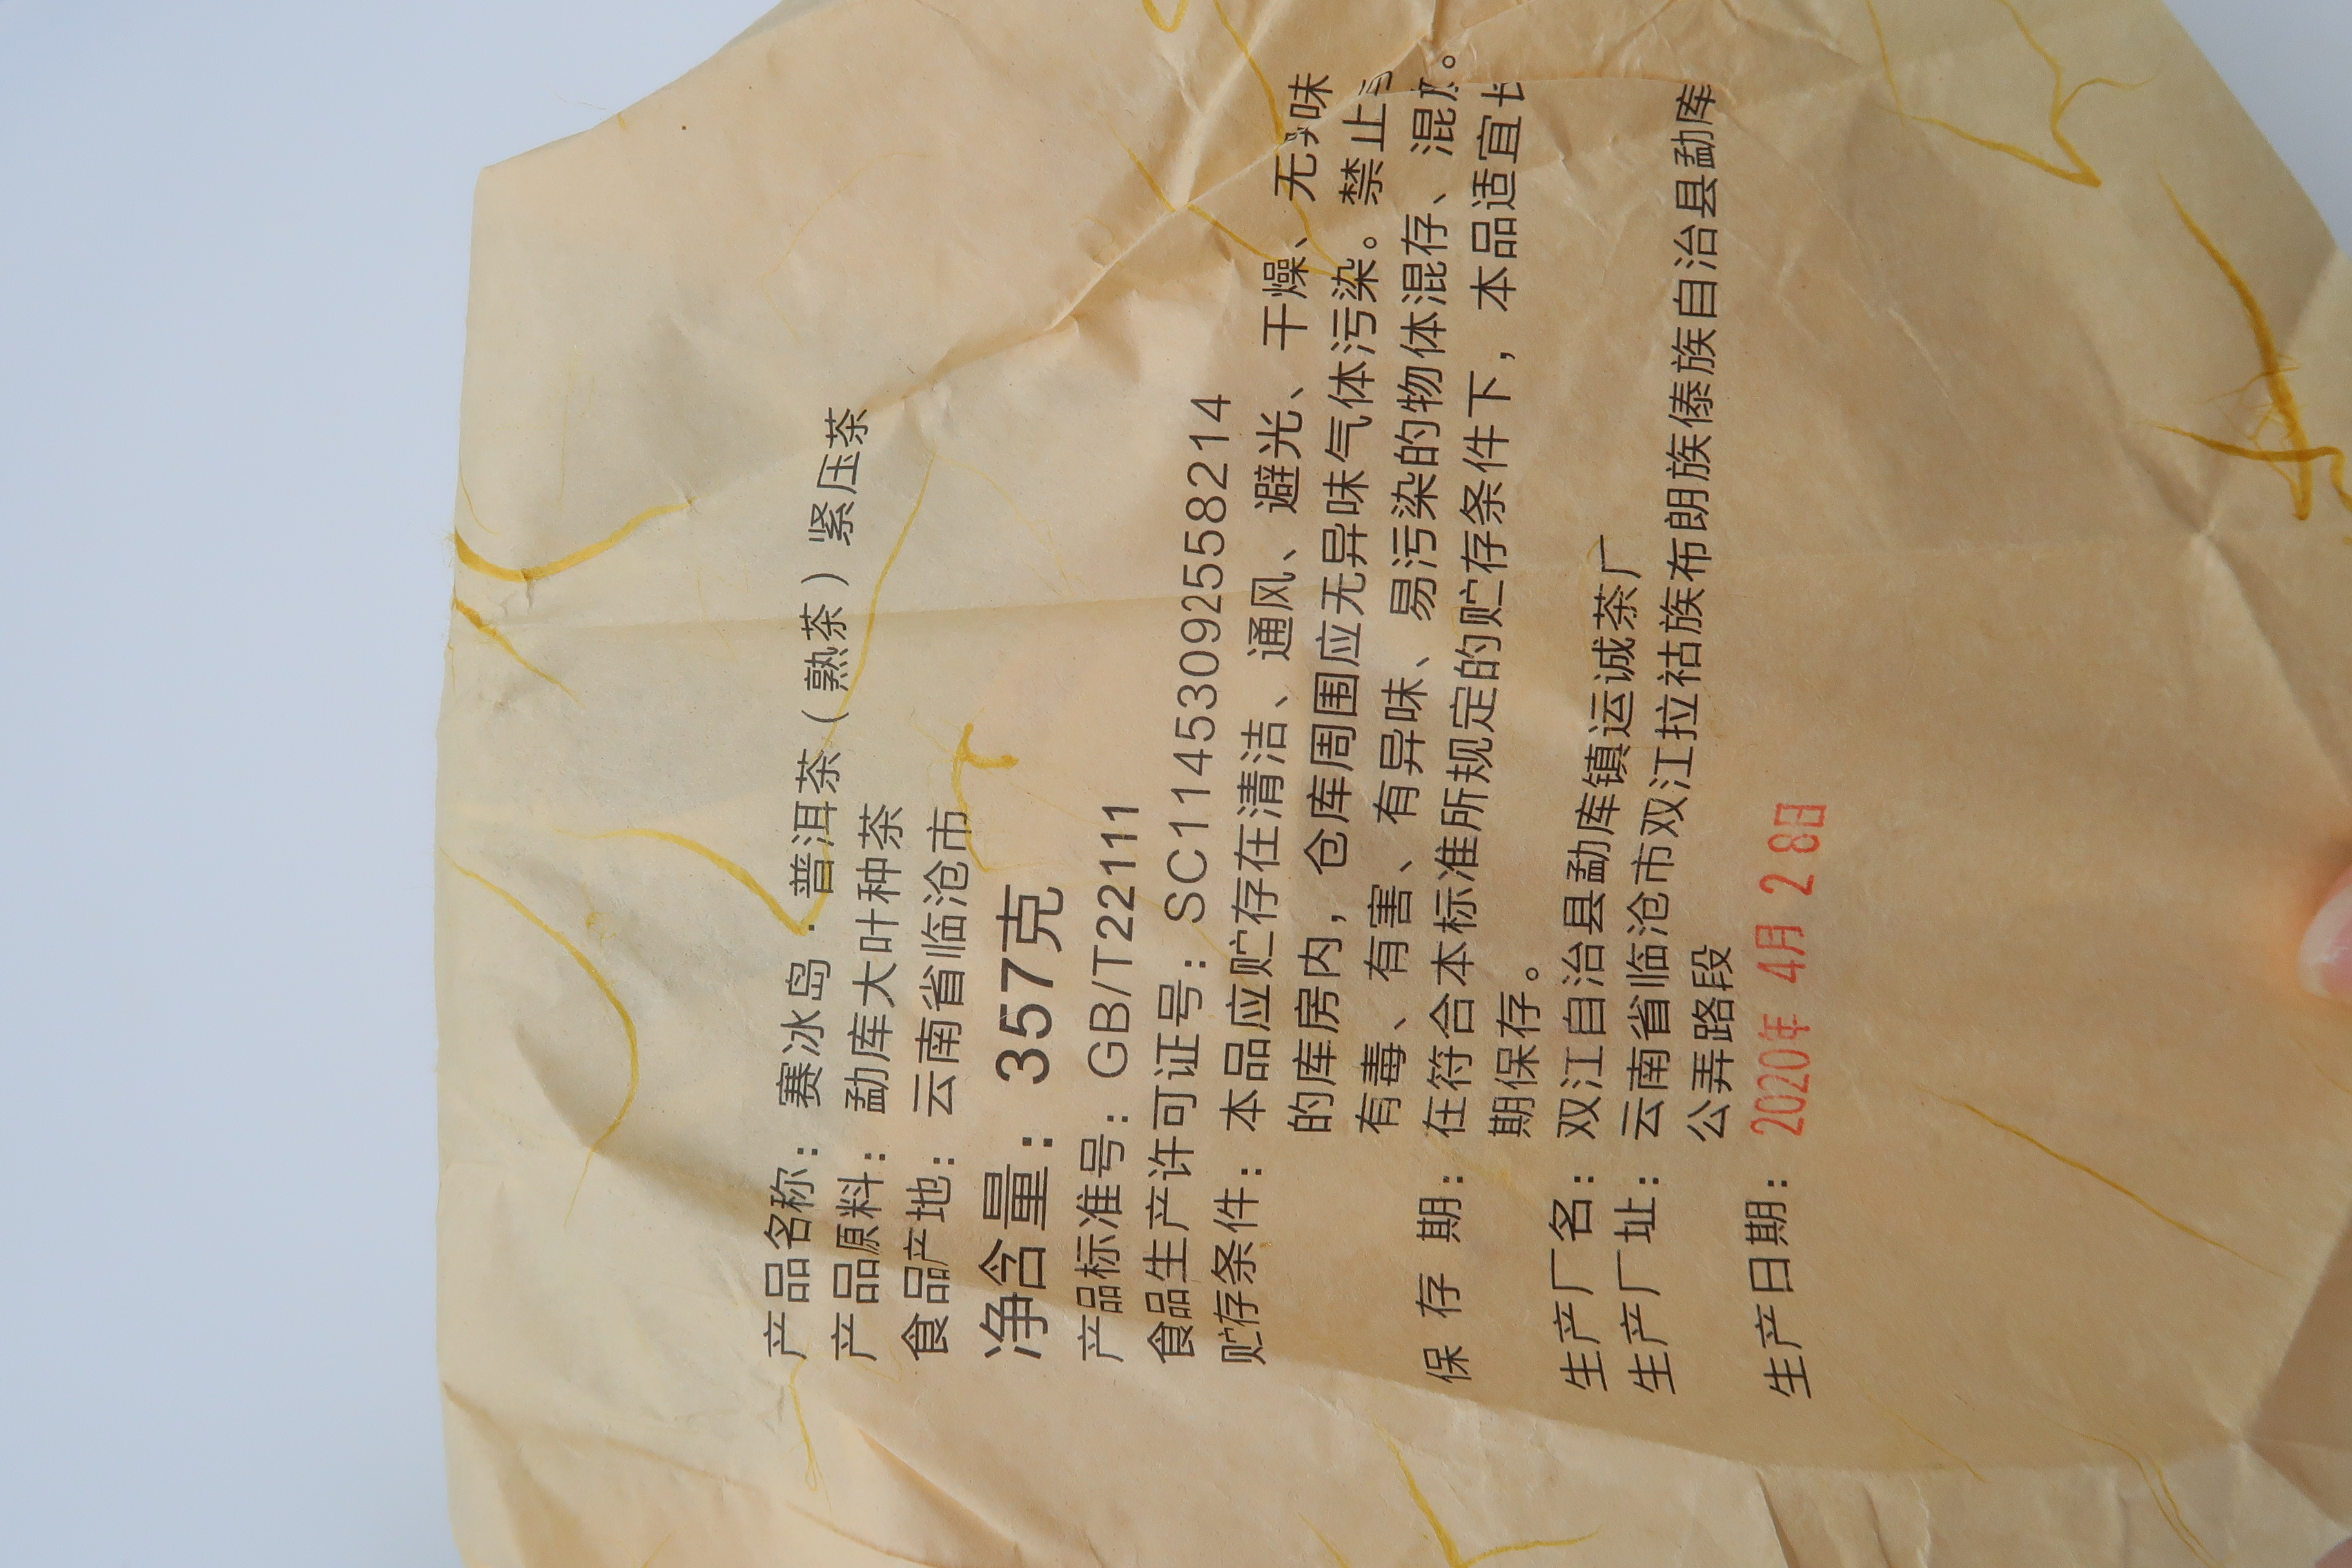 产品名称：赛冰岛·普洱茶（熟茶）紧压茶
产品原料：勐库大叶种茶
食品产地：云南省临沧市
净含量：357克
产品标准号：GB/T22111
食品生产许可证号：SC11453092558214
贮存条件：本品应贮存在清洁、通风、避光、干燥、无异味
的库房内，仓库周围应无异味气体污染。禁止
有毒、有害、有异味、易污染的物体混存、混放。
保存期：在符合本标准所规定的贮存条件下，本品适宜长
期保存。
生产厂名：双江自治县勐库镇运诚茶厂
生产厂址：云南省临沧市双江拉祜族佤族布朗族傣族自治县勐库
公弄路段
生产日期：2020年 4月 28日